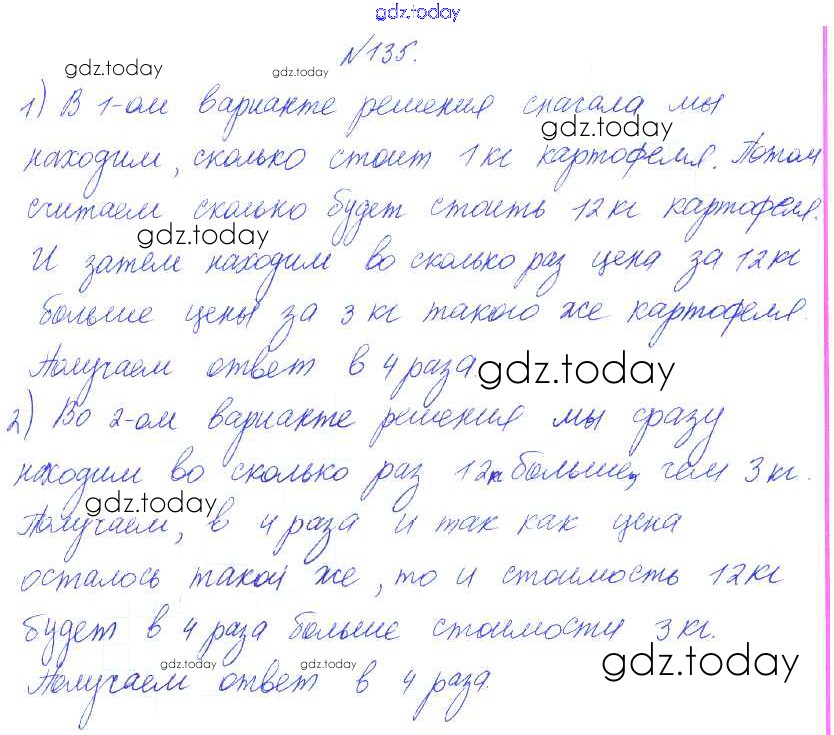 gdz.today
№135.
gdz.today
gdz.today
1) В 1-ом варианте решения сначала мы
gdz.today
находим, сколько стоит 1 кг картофеля. Потом
считаем сколько будет стоить 12 кг картофеля.
gdz.today
И затем находим во сколько раз цена за 12 кг
больше цены за 3 кг такого же картофеля.
Получаем ответ в 4 раза
gdz.today
2) Во 2-ом варианте решения мы сразу
находим во сколько раз 12 кг больше, чем 3 кг.
gdz.today
Получаем, в 4 раза и так как цена
осталось такой же, то и стоимость 12 кг
будет в 4 раза больше стоимости 3 кг.
gdz.today
gdz.today
gdz.today
Получаем ответ в 4 раза.